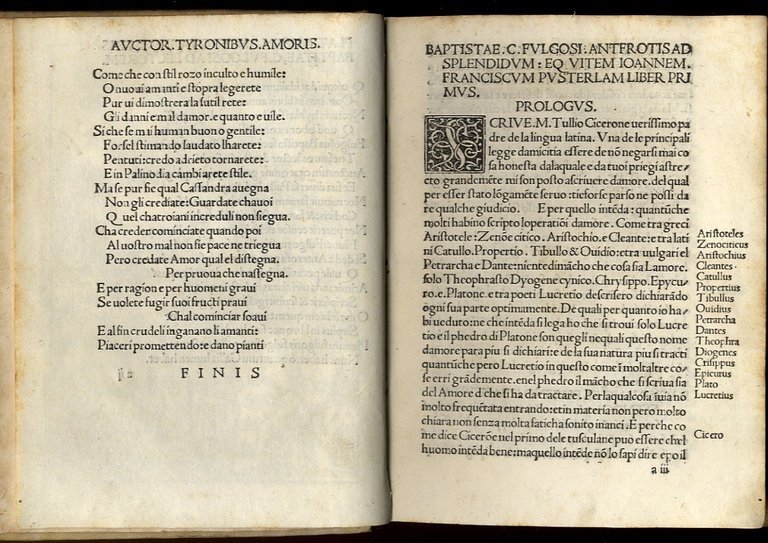 AVCTOR. TYRONIBVS. AMORIS.
Come che con stil rozo inculto e humile:
O nuoui amanti e stopra legerete
Pur ui dimostrera la sutil rete:
Gli danni e mal damor. e quanto e uile.
Si che se mai human buon o gentile:
Forsel stimando laudato lharete:
Pentuti: credo adrieto tornarete:
E in Palinodia cambiarete stile.
Ma se pur fie qual Cassandra auegna
Non gli crediate: Guardate chauoi
Quel cha troiani increduli non siegua.
Cha creder cominciate quando poi
Al uostro mal non sie pace ne triegua
Pero credate Amor qual el distegna.
Per pruoua che nassegna.
E per ragion e per huomeni graui
Se uolete fugir suoi fructi praui
Chal cominciar soaui
E al fin crudeli inganano li amanti:
Piaceri promettendo: e dano pianti
FINIS
BAPTISTAE. C. FVLGOSI: ANTEROTIS AD
SPLENDIDVM: EQVITEM IOANNEM.
FRANCISCVM PVSTERLAM LIBER PRI
MVS.
PROLOGVS.
SCRIVE. M. Tullio Cicerone uerissimo pa
dre de la lingua latina. Vna de le principali
legge damicitia essere de nō negarsi mai co
sa honesta dala quale e da tuoi priegi astre-
cto grandemēte mi son posto a scriuere damore. del qual
per esser stato lōgamēte seruo: tie forse parso ne possi da
re qualche giudicio. E per quello intēda: quantūche
molti habino scripto loperatiōi damore. Come tra greci
Aristotele: Zenōe citico. Aristochio. e Cleante: e tra lati
ni Catullo. Propertio. Tibullo & Ouidio: e tra uulgari el
Petrarcha e Dante: nientedimācho che cosa sia Lamore.
solo Theophrasto Dyogene cynico. Chrysippo. Epycu-
ro. e. Platone. e tra poeti Lucretio descrisero dichiarādo
ogni sua parte optimamente. De quali per quanto io ha-
bi ueduto: ne che intēda si lega ho che si troui solo Lucre
tio e il phedro di Platone son quegli ne quali questo nome
damore para piu si dichiari: e de la sua natura piu si tracti
quantūche pero Lucretio in questo come ī molte altre co-
se erri grādemente. e nel phedro il mācho che si scriua sia
del Amore d'che si ha da tractare. Per la qual cosa ī uia nō
molto frequētata entrando: et in materia non pero molto
chiara non senza molta faticha sonito inanci. E perche co
me dice Cicerōe nel primo dele tusculane puo essere chel
huomo intēda bene: ma quello intēde nō lo sapi dire e po il
a iii
Aristoteles
Zenociticus
Aristochius
Cleantes.
Catullus
Propertius
Tibullus
Ouidius
Petrarcha
Dantes
Theophra
Diogenes
Crisippus
Epicurus
Plato
Lucretius
Cicero